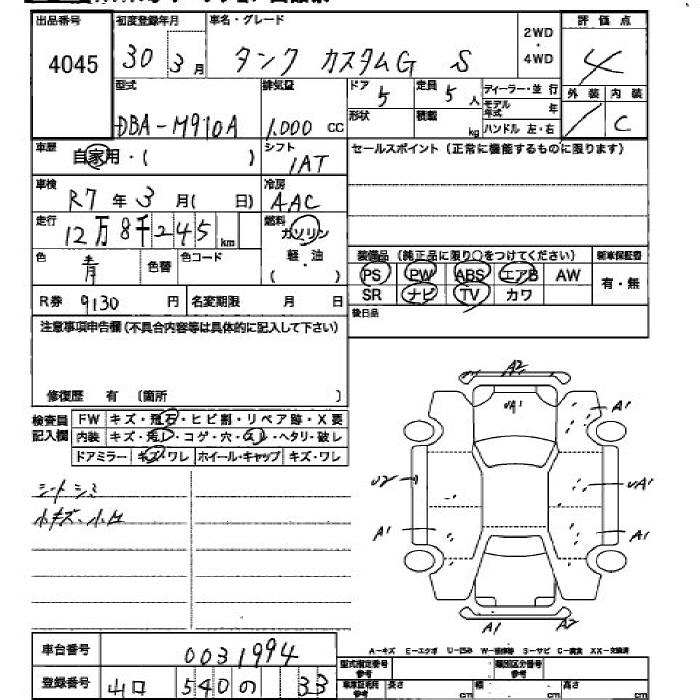 出品番号 初度登録年月 車名・グレード 2WD・4WD 評価点
4045 30 3月 タンク カスタムG S 4
型式 排気量 ドア 定員 ディーラー・並行 外装 内装
DBA-M910A 1.000 cc 5 5人 モデル年式 年
形状 積載 kg ハンドル 左・右 C
車歴 自家用・( ) シフト 1AT セールスポイント(正常に機能するものに限ります)
車検 R7年3月( 日) 冷房 AAC
走行 12万8千245km 燃料 ガソリン
色 青 色替 色コード 軽・油 ( )
装備品(純正品に限り○をつけてください) 新車保証書
PS PW ABS エアB AW 有・無
SR ナビ TV カワ
R券 9130円 名変期限 月 日
後日品
注意事項申告欄(不具合内容等は具体的に記入して下さい)
修復歴 有 〔箇所 〕
検査員記入欄 FW キズ・飛石・ヒビ割・リペア跡・X要
内装 キズ・汚レ・コゲ・穴・スレ・ヘタリ・破レ
ドアミラー キズ・ワレ ホイール・キャップ キズ・ワレ
シートシミ
小キズ・小凹
A2
UA1 A1
U2 UA1
A1 A1
A1 A2
A-キズ E-エクボ U-凹み W-補修跡 S-サビ C-腐食 XX-交換済
車台番号 0031994
型式指定番号 参考 類別区分番号 参考
登録番号 山口 540 の 33
車庫証明用 参考 長さ cm 幅 cm 高さ cm